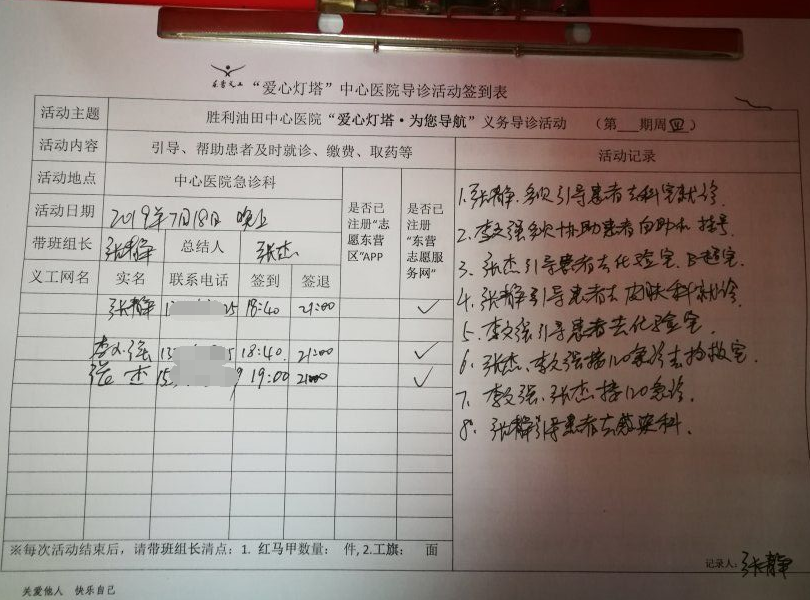 东营义工
“爱心灯塔”中心医院导诊活动签到表
活动主题 胜利油田中心医院“爱心灯塔·为您导航”义务导诊活动 （第___期周四）
活动内容 引导、帮助患者及时就诊、缴费、取药等
活动地点 中心医院急诊科
活动日期 2019年7月18日 晚上
带班组长 张静 总结人 张杰
是否已注册“志愿东营区”APP
是否已注册“东营志愿服务网”
义工网名 实名 联系电话 签到 签退
张静 13 25 18:40 21:00 ✓
李文强 13 5 18:40. 21:00 ✓
张杰 15 9 19:00 21:00 ✓
※每次活动结束后，请带班组长清点：1. 红马甲数量： 件, 2.工旗： 面
关爱他人 快乐自己
活动记录
1.张静多次引导患者去科室就诊.
2.李文强多次协助患者自助机挂号.
3.张杰引导患者去化验室.B超室.
4.张静引导患者去皮肤科就诊.
5.李文强引导患者去化验室.
6.张杰、李文强接120急诊去抢救室.
7.李文强、张杰接120急诊.
8.张静引导患者去感染科.
记录人：张静